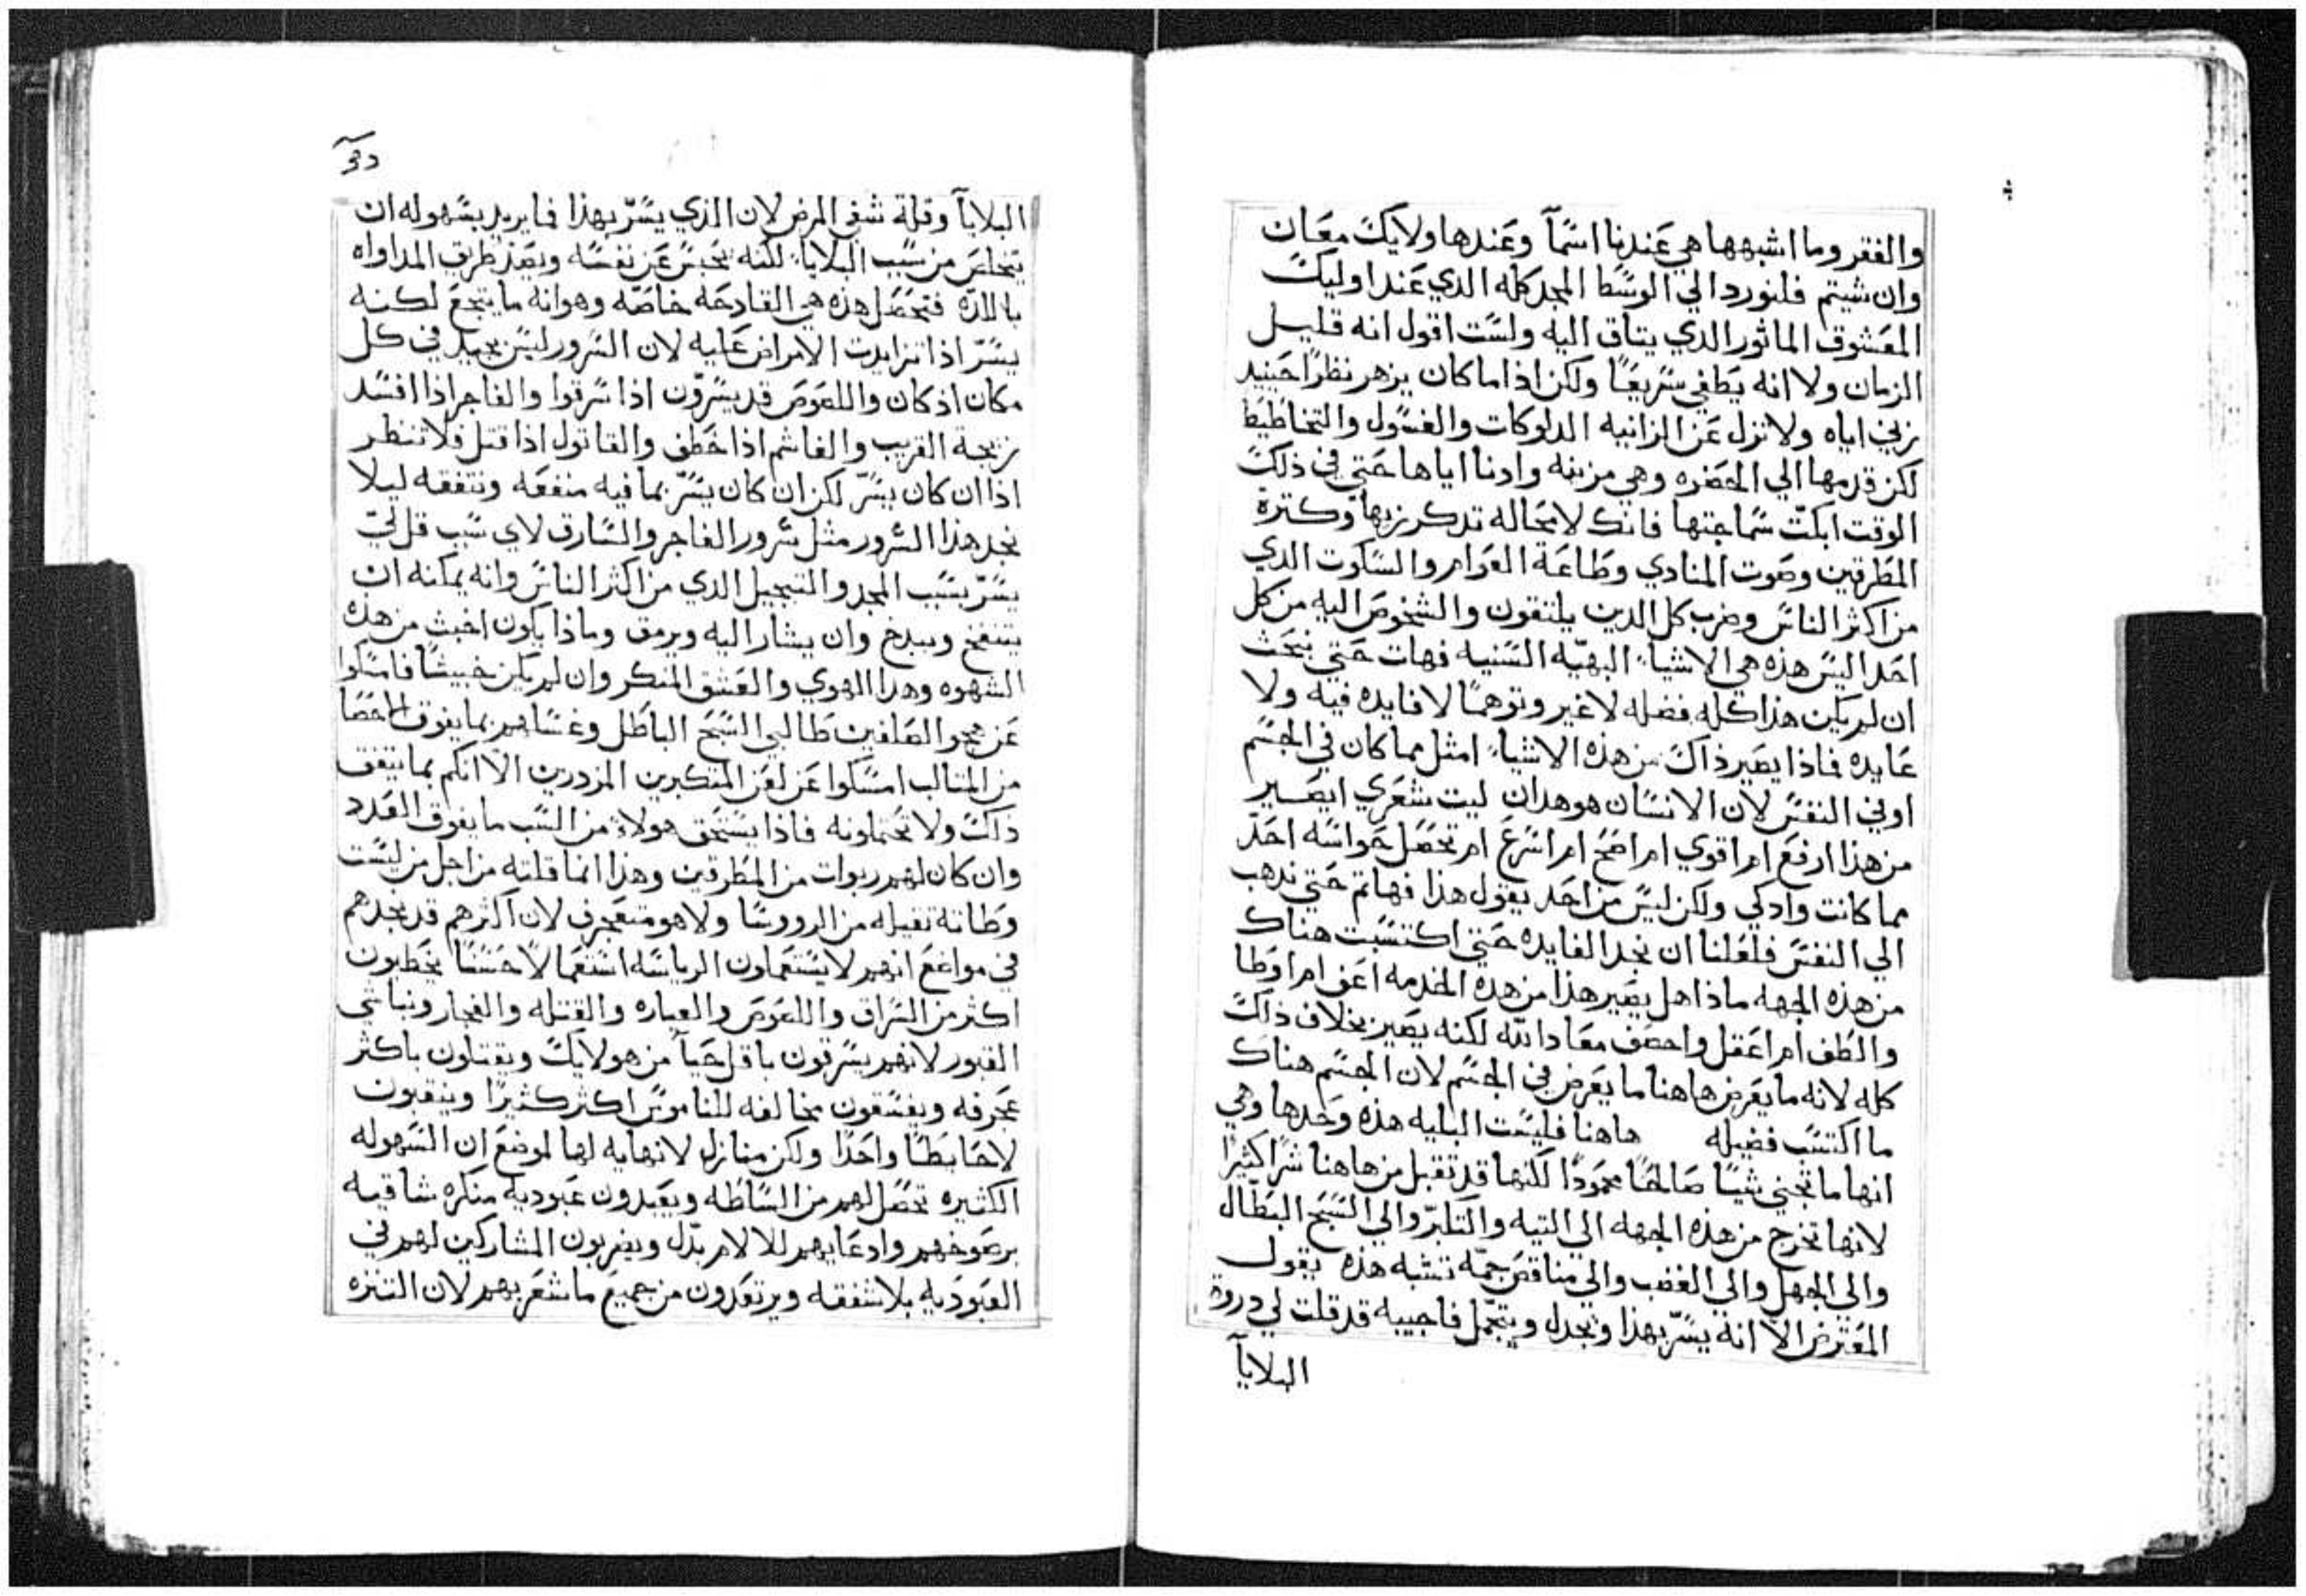 والفقر وما اشبهها هي عَندنا اسَمآ وعَندها ولايكَ معَان
وان شيتم فلنورد الي الوسَط المجد كله الدي عَند اوليكَ
المعَشوق الماثور الدي يتاق اليه ولسَت اقول انه قليل
الزمان ولا انه يَطفي سَريعَاً ولكن اذا ما كان يزهر نظراً حَينيد
نرَي اياه ولا تزل عَن الزانيه الدلوكات والغسَول والتخاطيَط
لكن قدمها الي الحَضره وهي مزينه وادنا اياها حَتي في ذلكَ
الوقت ابكتّ سَماجتها فانك لا محَاله تدكر زيها وكترة
المَطرقين وصَوت المنادي وطَاعَة العَوام والسَاكوت الدي
من اكثر الناسَ وضرب كل الدين يلتقون والشخوصَ اليه من كل
احَد اليسَ هذه هي الاشياء البهيّه السَنيه فهات حَتي نبحَث
ان لم يكن هذا كله فضله لاغير وتوهماً لا فايده فيه ولا
عَايده فماذا يصَير ذاكَ من هذه الاشياء امثل مما كان في الجسَم
اوفي النفسَ لان الانسَان هو هدان ليت شعَري ايصَير
من هذا ارفعَ ام اقوي ام اصَحَ ام اسَرعَ ام تحصَل حَواسَه احَدّ
مما كانت وادكي ولكن ليسَ من احَد يقول هذا فهاتم حَتي ندهب
الي النفسَ فلعَلنا ان نجد الفايده حَتي اكتسَبت هناك
من هذه الجهه ماذا هل يصَير هذا من هذه الخدمه اعَف ام اوطَا
والطَف ام اعَقل واحصَف معَاد الله لكنه يصَير بخلاف ذاكَ
كله لانه ما يعَرض هاهنا ما يعَرض في الجسَم لان الجسَم هناك
ما اكتسَب فضيله هاهنا فليسَت البليه هذه وحَدها وهي
انها ما تجني شيَاً صَالحَاً محمودًا لكنها قد تقبل من هاهنا شراً كثيرًا
لانها تخرج من هذه الجهه الي التيه والتكبرّ والي السَبَح البَطَال
والي الجهل والي الغضب والي مناقصَ جمّه تشبه هذه يقول
المعَترض الا انه يسَرّ بهذا ويجدل ويتجمّل فاجيبه قد قلت لي دروة
البلايآ
البلايآ وقلة شفي المرض لان الذي يسَرّ بهذا فما يريد بسَهوله ان
يتخلصَ من سَبب البلايا لكنه يحَبسَ عَن نفسَه ويصَد طريق المداواه
بالمرّه فتحصَل هذه هي القادحَه خاصّه وهو انه ما يتجعَ لكنه
يسَرّ اذا تزايدت الامراض عَليه لان السَرور ليسَ بجيد في كل
مكان اذ كان واللصَوصَ قد يسَرّون اذا سَرقوا والفاجر اذا افسَد
زيجة القريب والغاشم اذا خَطف والقاتول اذا قتل فلا تنظر
اذا ان كان يسَرّ لكن ان كان يسَرّ بما فيه منفعَه وتنفقه ليلا
نجد هذا السَرور مثل سَرور الفاجر والسَارق لاي سَبب قل لي
يسَرّ بسَبب المجد والتبجيل الدي من اكثر الناسَ وانه يمكنه ان
ينتفخ ويبدخ وان يشار اليه ويرمق وماذا يكون اخبث من هذه
الشهوه وهدا الهوي والعَشق المنكر وان لم يكن خبيثاً فامسَكوا
عَن هجو الصَلفين طَالبي السَبَح الباطَل وغشاهم بما يفوق الاحصَا
من المثالب امسَكوا عَن لعَن المتكبرين المزدرين الا انكم بما يتفق
ذاكَ ولا تحَتملونه فاذا يسَتحَق هولاء من السَب ما يفوق العَدد
وان كان لهم ربوات من المَطرقين وهذا انما قلته من اجل من ليسَت
وطَاته ثقيله من الرووسَا ولا هو متعَجرف لان اكثرهم قد نجدهم
في مواضعَ انهم لا يسَتعَملون الرياسَه اسَتعَمالاً حَسَناً يخَطيون
اكثر من السَراق واللصَوصَ والعياره والقتله والفجار ونباشي
القبور لانهم يسَرقون باقل حَيآ من هولايكَ ويقتلون باكثر
عَجرفه ويفسَقون مخالفه للناموسَ اكثر كثيرًا وينقبون
لا حَايطَاً واحَدًا ولكن منازل لا نهايه لها لموضعَ ان السَهوله
الكثيره تحصَل لهم من السَلطَه ويعَبدون عَبوديه منكره شاقيه
برضوخهم وادعَايهم للالام بذل ويضربون المشاركين لهم في
العَبوديه بلا شفقه ويرتعَدون من جميعَ ما شعَر بهم لان التنزه